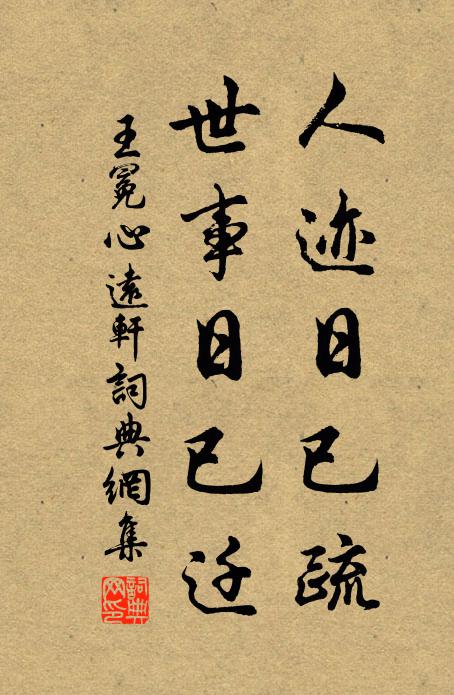 人迹日已疏
世事日已迁
王冕心遠軒詞典網集
詞典
网印